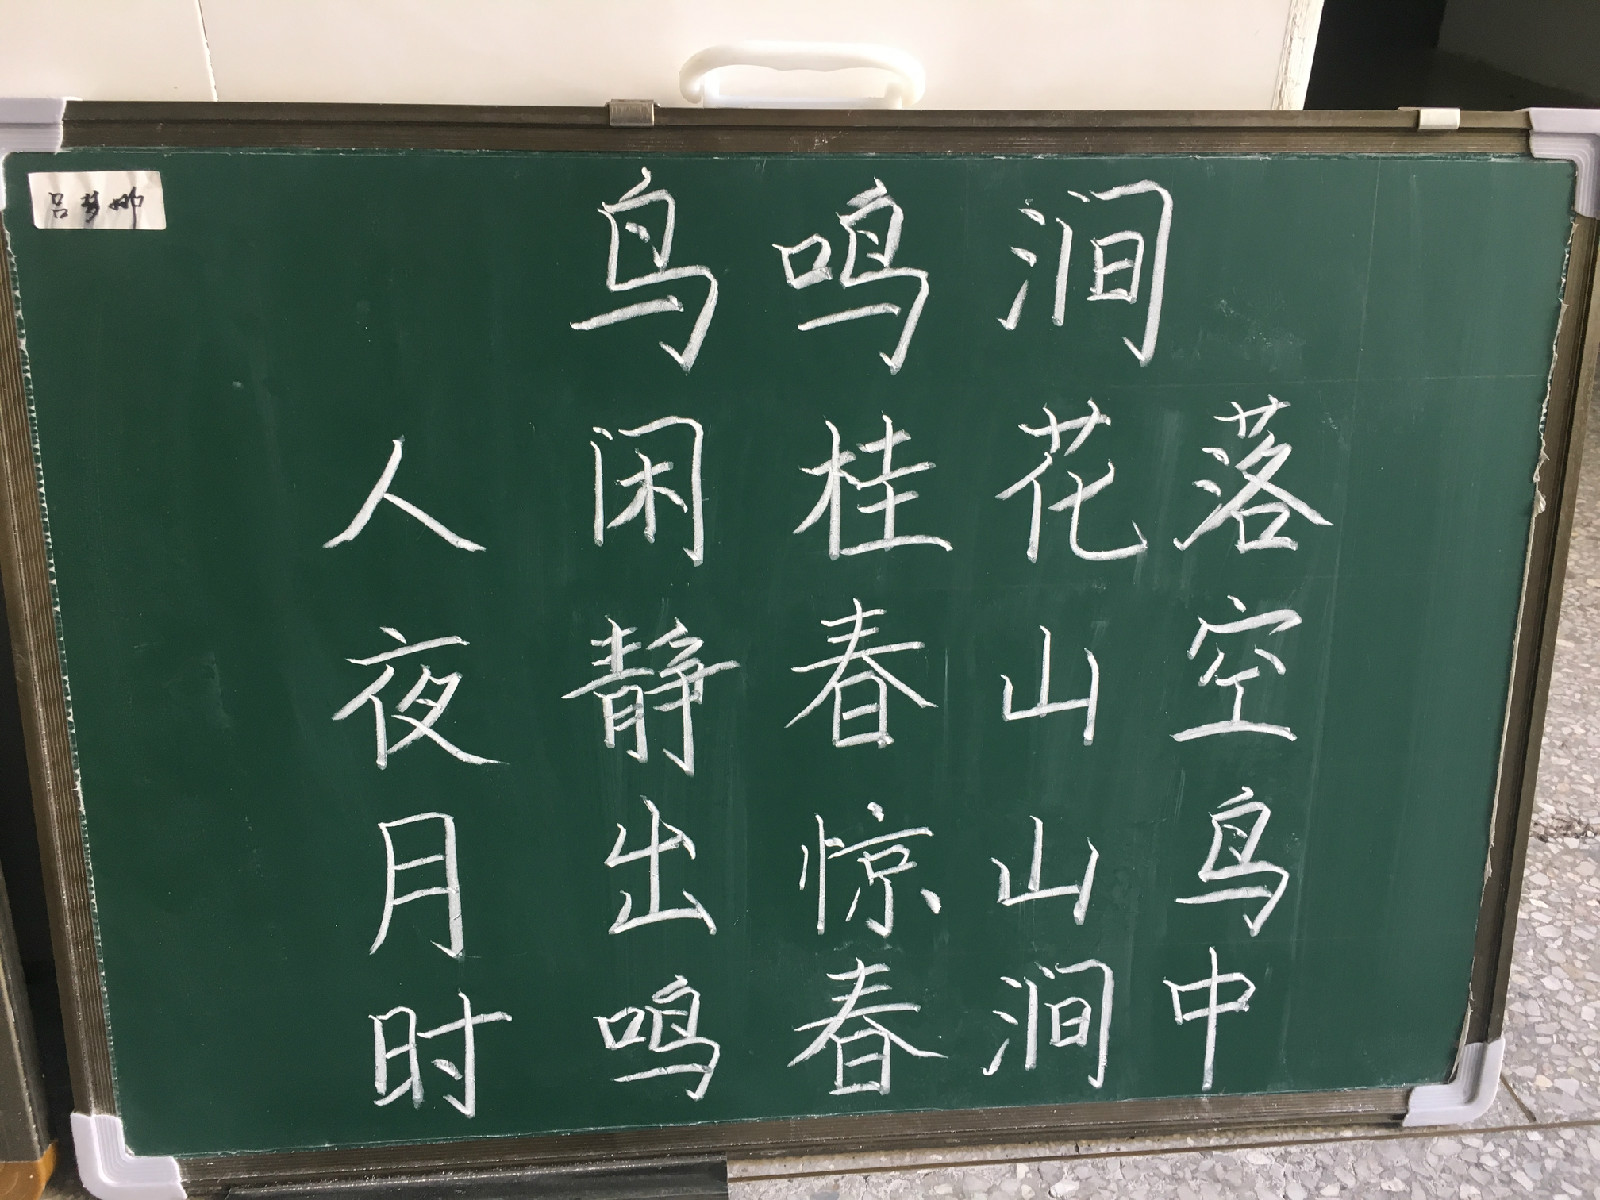 吕梦娜
鸟鸣涧
人闲桂花落
夜静春山空
月出惊山鸟
时鸣春涧中